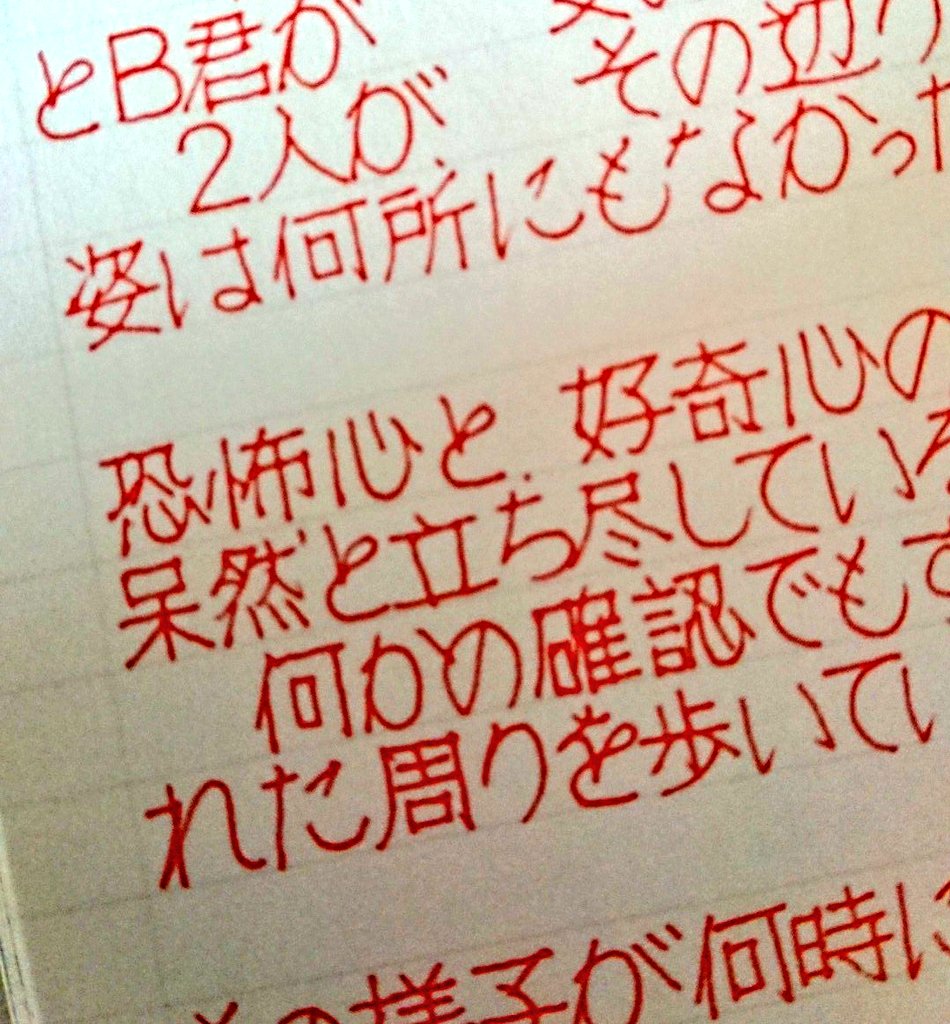 とB君が
2人が その辺り
姿は何所にもなかった
恐怖心と、好奇心の
呆然と立ち尽している
何かの確認でもす
れた周りを歩いてい
の様子が何時に